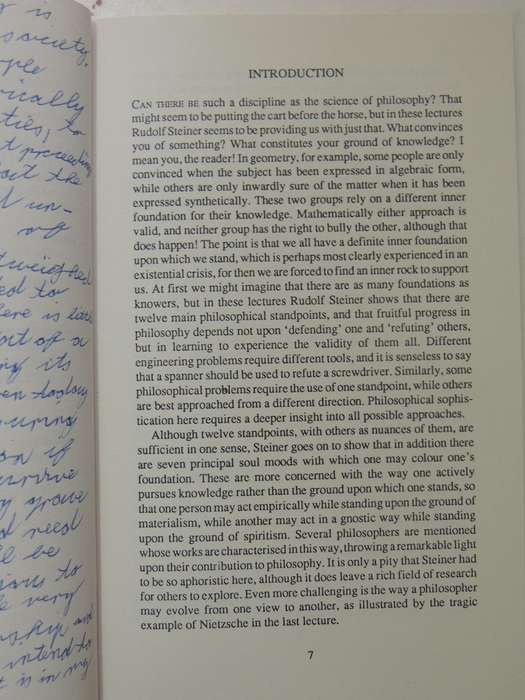 r is
society.
ple
rically
ties, to
t proceeding
out the
d un-
of
tweighed
ed to
ere is
out of a
ng its
en today
uring
on if
survive
y grow
d need
ll be
ions to
e very
and
intend to
t is in my
INTRODUCTION
CAN THERE BE such a discipline as the science of philosophy? That
might seem to be putting the cart before the horse, but in these lectures
Rudolf Steiner seems to be providing us with just that. What convinces
you of something? What constitutes your ground of knowledge? I
mean you, the reader! In geometry, for example, some people are only
convinced when the subject has been expressed in algebraic form,
while others are only inwardly sure of the matter when it has been
expressed synthetically. These two groups rely on a different inner
foundation for their knowledge. Mathematically either approach is
valid, and neither group has the right to bully the other, although that
does happen! The point is that we all have a definite inner foundation
upon which we stand, which is perhaps most clearly experienced in an
existential crisis, for then we are forced to find an inner rock to support
us. At first we might imagine that there are as many foundations as
knowers, but in these lectures Rudolf Steiner shows that there are
twelve main philosophical standpoints, and that fruitful progress in
philosophy depends not upon ‘defending’ one and ‘refuting’ others,
but in learning to experience the validity of them all. Different
engineering problems require different tools, and it is senseless to say
that a spanner should be used to refute a screwdriver. Similarly, some
philosophical problems require the use of one standpoint, while others
are best approached from a different direction. Philosophical sophis-
tication here requires a deeper insight into all possible approaches.
Although twelve standpoints, with others as nuances of them, are
sufficient in one sense, Steiner goes on to show that in addition there
are seven principal soul moods with which one may colour one’s
foundation. These are more concerned with the way one actively
pursues knowledge rather than the ground upon which one stands, so
that one person may act empirically while standing upon the ground of
materialism, while another may act in a gnostic way while standing
upon the ground of spiritism. Several philosophers are mentioned
whose works are characterised in this way, throwing a remarkable light
upon their contribution to philosophy. It is only a pity that Steiner had
to be so aphoristic here, although it does leave a rich field of research
for others to explore. Even more challenging is the way a philosopher
may evolve from one view to another, as illustrated by the tragic
example of Nietzsche in the last lecture.
7